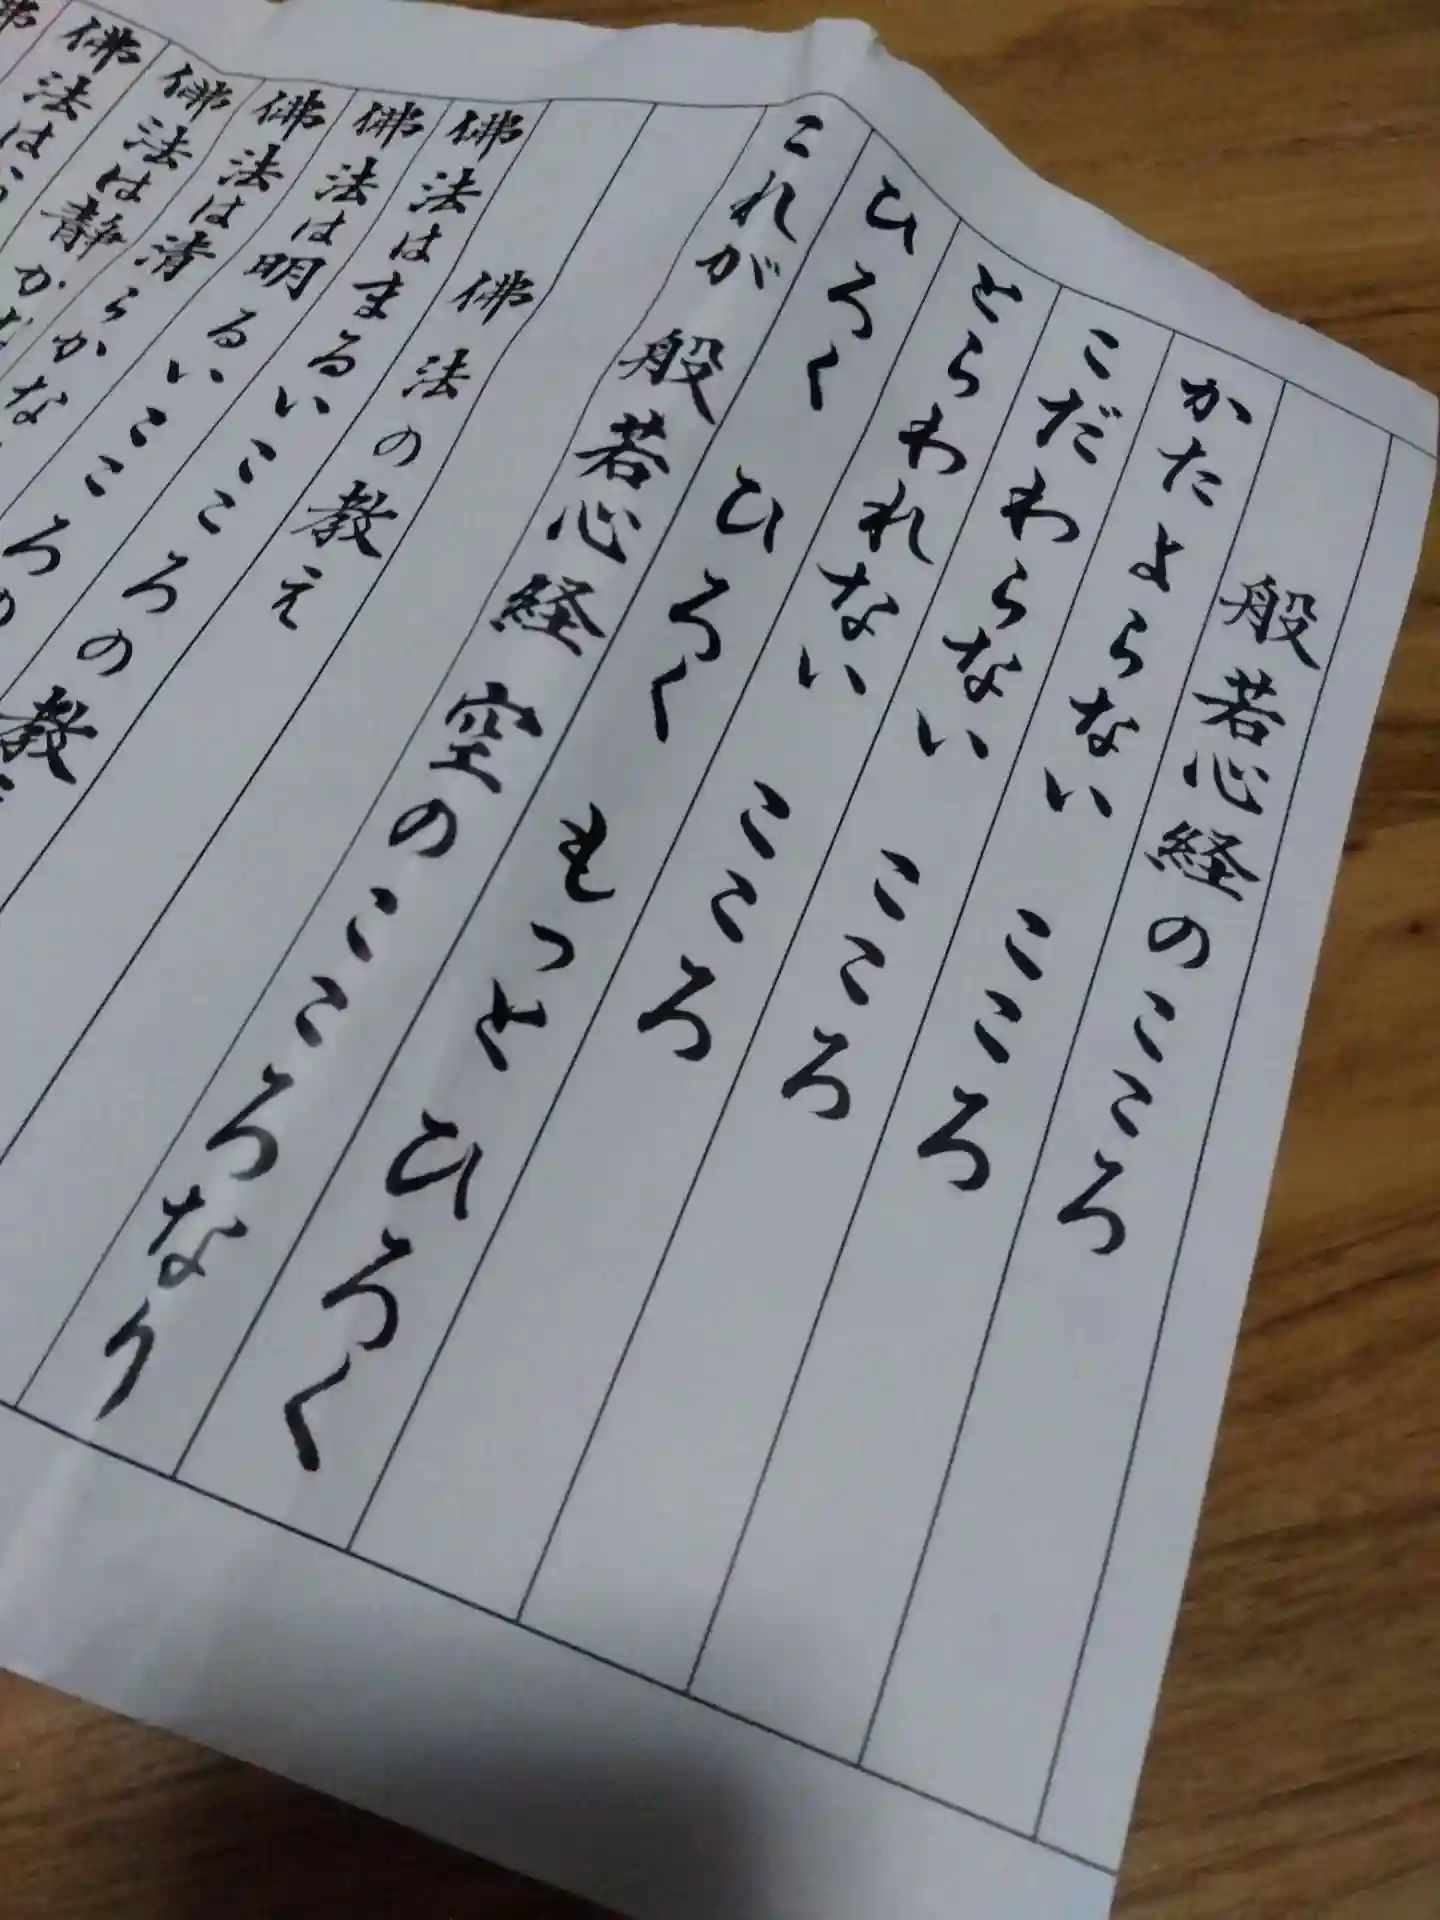 般若心経のこころ
かたよらない こころ
こだわらない こころ
とらわれない こころ
ひろく ひろく もっと ひろく
これが 般若心経 空のこころなり
佛法の教え
佛法はまるいこころの教
佛法は明るいこころの
佛法は清らかな
佛法は静かな
佛法は
佛